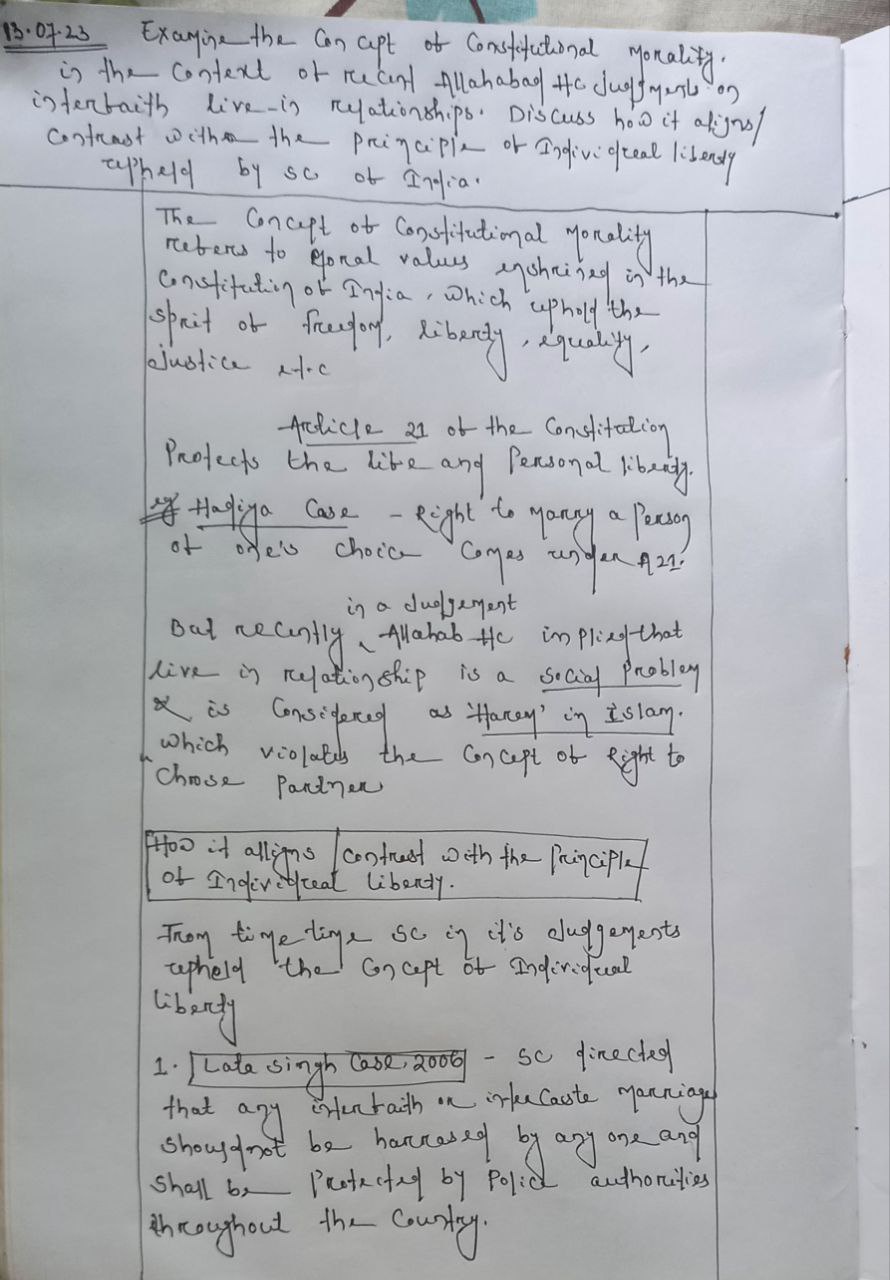 13.07.23 Examine the Concept of Constitutional Morality.
in the Context of recent Allahabad Hc Judgments on
interfaith live-in relationships. Discuss how it aligns/
Contrast with the principle of Individual liberty
upheld by SC of India.
The Concept of Constitutional Morality
refers to Moral values enshrined in the
Constitution of India, which uphold the
sprit of freedom, liberty, equality,
Justice etc
Article 21 of the Constitution
Protects the life and Personal liberty.
eg Hadiya Case - Right to marry a Person
of one's choice Comes under A 21.
in a Judgement
But recently, Allahab Hc implied that
live in relationship is a Social Problem
& is Considered as 'Harem' in Islam.
which violates the Concept of Right to
Choose Partner
How it alligns / contrast with the Principle
of Individual liberty.
From time time SC in it's Judgements
uphold the Concept of Individual
liberty
1. Lata Singh Case, 2006 - SC directed
that any interfaith or inter Caste Marriage
should not be harrased by any one and
Shall be Protected by Police authorities
throughout the Country.